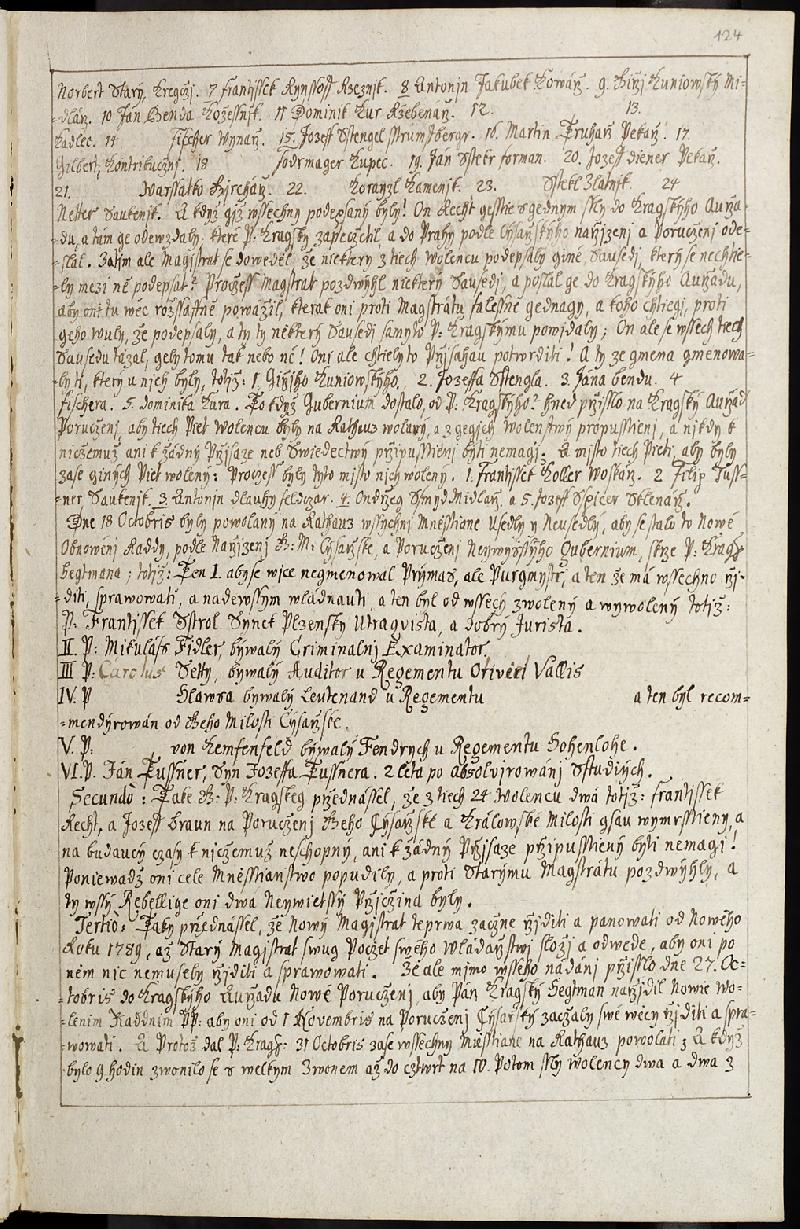 124
Norbert Starý, Kregčzj. 7 Frantissek Kynssoff Rzeznjk. 8 Antonjn Jakubek Kowárž. 9. Giržj Kuniowský Mi-
=dlárž. 10 Ján Benda Kožessnjk. 11 Dominik Kur Rzebenárž. 12. 13.
Kadlec. 14 Fischer Wynarž. 15. Jozeff Sstengel sstrumfbergr. 16. Martin Truharž Pekarž. 17
Gilbert, Kontribučznj. 18 Todrmager Kupec. 19. Ján Sstetr forman. 20. Jozeff diener Pekarž.
21. Warssatko Bjrchárž. 22. Koranzl Kamenjk. 23. Sstekl Zlatnjk. 24
Netter Sautenjk. A když gjž wssechny podepsaný byly! On Recht gesstie s gednym ssly do Kragskýho Aurža-
du, a tám ge odewzdaly, které P: Kragský zapečzetil, a do Prahy podle Cysařžskýho naržjzenj a Poručzenj ode-
slal. Zatjm ale Magistrat se doweděl, že niekterý z tiech Wolencu podepsaly giné Sausedj, který se nechtie-
ly mezi ně podepsat? Pročzess Magstrat pozdwyhl niekterý Sausedj, a poslal ge do Kragskýho Auržadu,
aby oni tu wěc rožssaffně powážil, kterak oni proti Magstrátu falessně gednagy, a koho chtiegj, proti
geho wuly, že podepsaly, a ty ty některý Sausedj samý to P: Kragskýmu powjdaly; On ale se wssech tiech
Sausedu tázal, gely tomu tak nebo né! Oni ale chtiely to Pržjsahau potwrditi! A ty ze gmena gmenowa-
=bytj, který u nich byly, totjž: 1. Giržjho Kuniowskýho, 2. Jozeffa Sstengla. 3. Jána bendu. 4
fischera. 5. dominika Kura. To když Gubernium dostalo, od P: Kragskýho? hned pržisslo na Kragský Auržad
Poručzenj, aby tiech Piet Wolencu byly na Rathaus wolaný, a z gegich Wolenstwj propusstienj, a nikdy k
ničzemuž, ani k žádný Pržjsaze neb Swiedectwý pržipusstienj býti nemagj. A misto tiech Pieti, aby byly
zase giných Piet woleny: Pročzess byly tyto misto nich woleny. 1. Frantissek Holler Woskarž. 2 Filip Tuss-
=ner Sautenjk. 3 Antonjn dlauhý feldczar. 4. Ondržeg Sstmjd Midlarž, a 5. Jozyff Spicer Sklenarž.
Dne 18 Octobris byly powolany na Rathaus wssychnj Mněsstiane Usedlý y Neusedlý, aby se stalo to Nowé
Obnowenj Raddy, podle Naržjzenj J: M: Cysařžske, a Poručzenj Neywyžssýho Gubernium, skrze P: Kragsk
hegtmana; totjž: Ten 1. aby se wjce negmenowal Prýmas, ale Purgmystr, a ten že má wssechno ržj-
=diti, sprawowati, a nadewssým wládnauti, a ten byl od wssech zwolený a wywolený totjž:
P: Frantissek Sstrol Synet Plzenský Utraqvista, a dobrý Jurista.
II. P: Mikuláss Fidler, býwalý Criminalnj Examinator,
III P: Carolus Setty, býwalý Auditor u Regementu Olivéri Vallis
IV. P Slawsa býwalý Leutenand u Regementu a ten byl recom=
=mendýrowán od Jeho Milosti Cýsaržske.
V. P: von Kemfenfeld býwalý Fendrych u Regementu Hohenlohe.
VI. P. Ján Tussner, Syn Jozeffa Tussnera. 2 léta po absolvjrowánj Sstudiých.
Secundò: Také J: P: Kragskeg pržednássel, že z tiech 24 Wolencu dwá totjž: Frantissek
Recht, a Jozeff Braun na Poručzenj Jeho Cýsařžské a Králowské Milosti gsau wymrsstieny, a
na budaucý cžasý k ničzemuž neschopný, ani k žádný Pržjsaze pržipusstienj býti nemagj!
Poniewadž oni celé Mněsstianstwo popudily, a proti Starýmu Magstrátu pozdwýhly, a
ty wssý Rebellige oni dwá Neywietssý Pržjčzina byly.
Tertiò: Taky pržednássel, že Nowý Magistrat teprwa začzne ržjditi a panowati od Nowého
Roku 1789, až Starý Magjstrat swug Počzet swého Wládarzstwj složj a odwede, aby oni po
něm nic nemusely ržjditi a sprawowati. Že ale mjmo wssého nádánj pržisslo dne 27. Oc=
=tobris do Kragskýho Auržadu Nowé Poručzenj, aby Pán Kragský Hegtman naržjdil Nowie Wo-
=leným Raddnjm PP: aby oni od 1 Novembris na Poručzenj Cýsařžský začzaly swé wěcy ržjditi a spra-
=wowati. A Protož dal P: Kragsk: 31 Octobris zase wssechny Mněsstiane na Rathaus powolati; A když
bylo 9 hodin zwonilo se s welkym Zwonem až do cztwrt na 10. Potom ssly Wolency dwa a dwa z